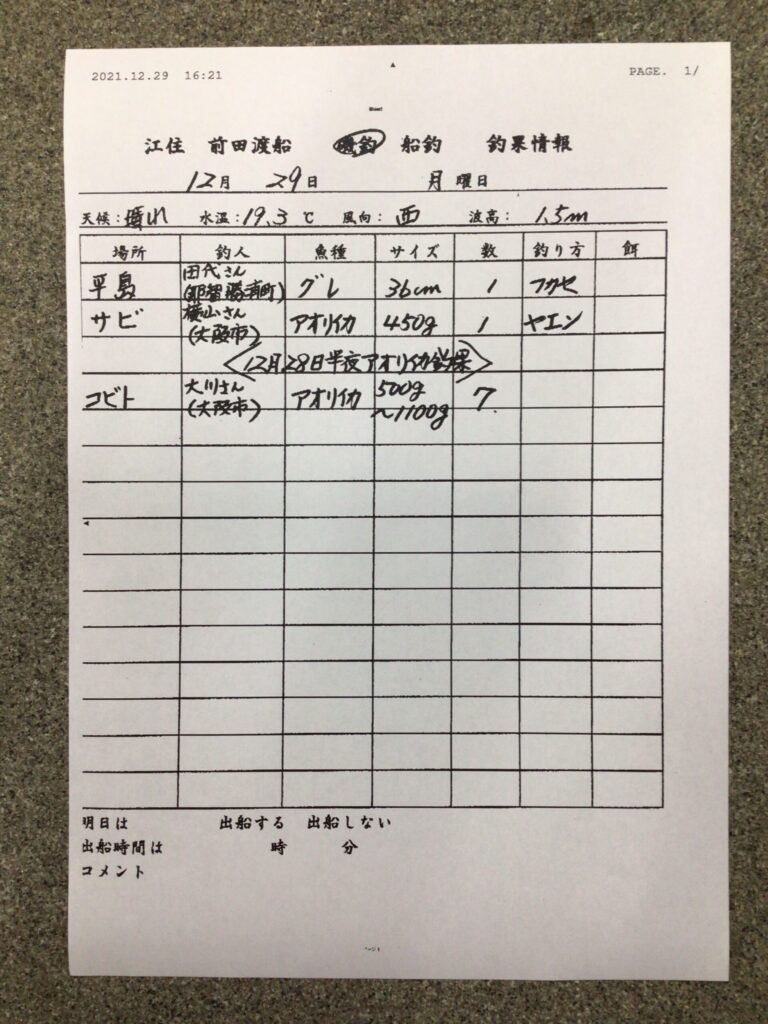 2021.12.29 16:21 PAGE. 1/
江住 前田渡船 磯釣 船釣 釣果情報
12月 29日 月曜日
天候:晴れ 水温:19.3 ℃ 風向:西 波高: 1.5m
場所 釣人 魚種 サイズ 数 釣り方 餌
平島 田代さん (那智勝浦町) グレ 36cm 1 フカセ
サビ 横山さん (大阪市) アオリイカ 450g 1 ヤエン
<12月28日半夜アオリイカ釣果>
コビト 大川さん (大阪市) アオリイカ 500g ~1100g 7
明日は 出船する 出船しない
出船時間は 時 分
コメント